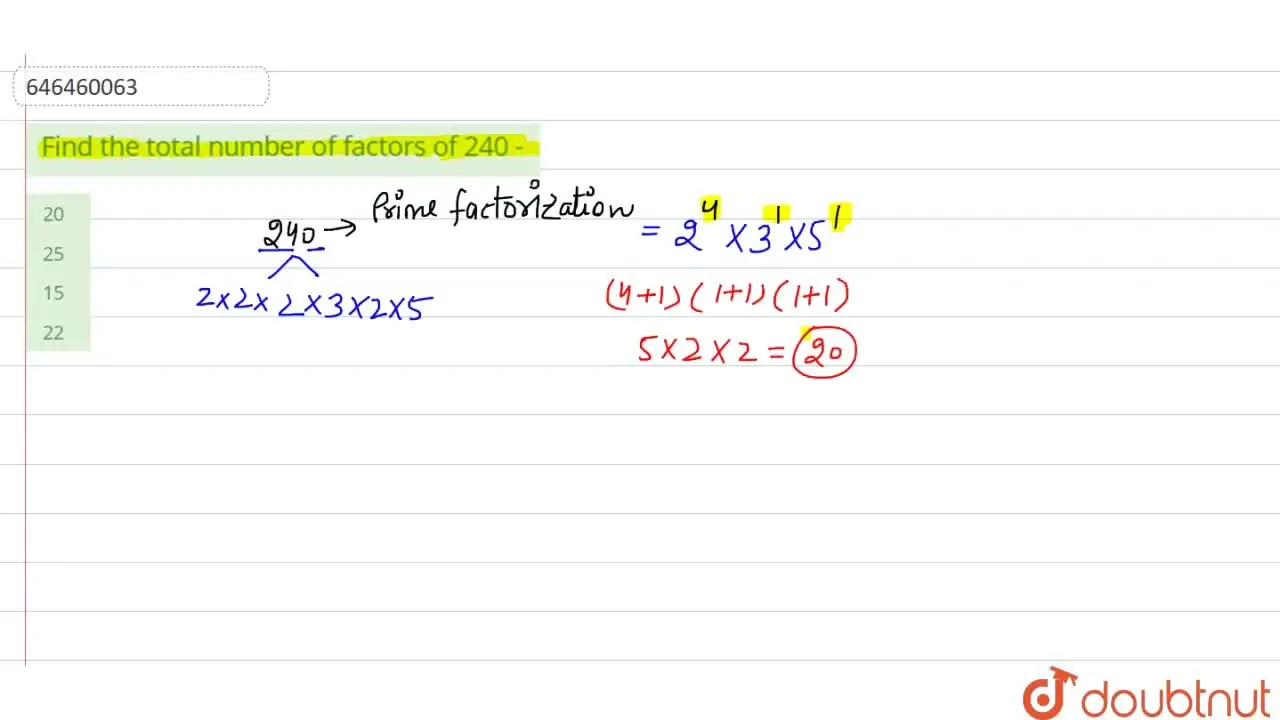 646460063
Find the total number of factors of 240 -
20
25
15
22
240 → Prime factorization = 2^4 × 3^1 × 5^1
2×2×2×3×2×5
(4+1) (1+1) (1+1)
5×2×2 = 20
doubtnut